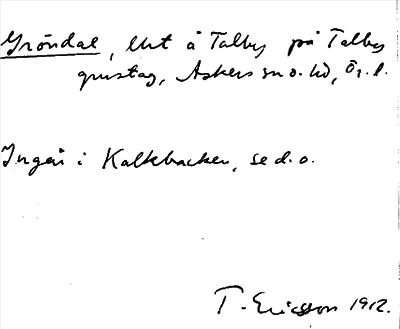 Gröndal, lht å Talby på Talby
grustag, Askers sn o. hd, Ör. l.
Ingår i Kalkbacken, se d. o.
T. Ericsson 1912.